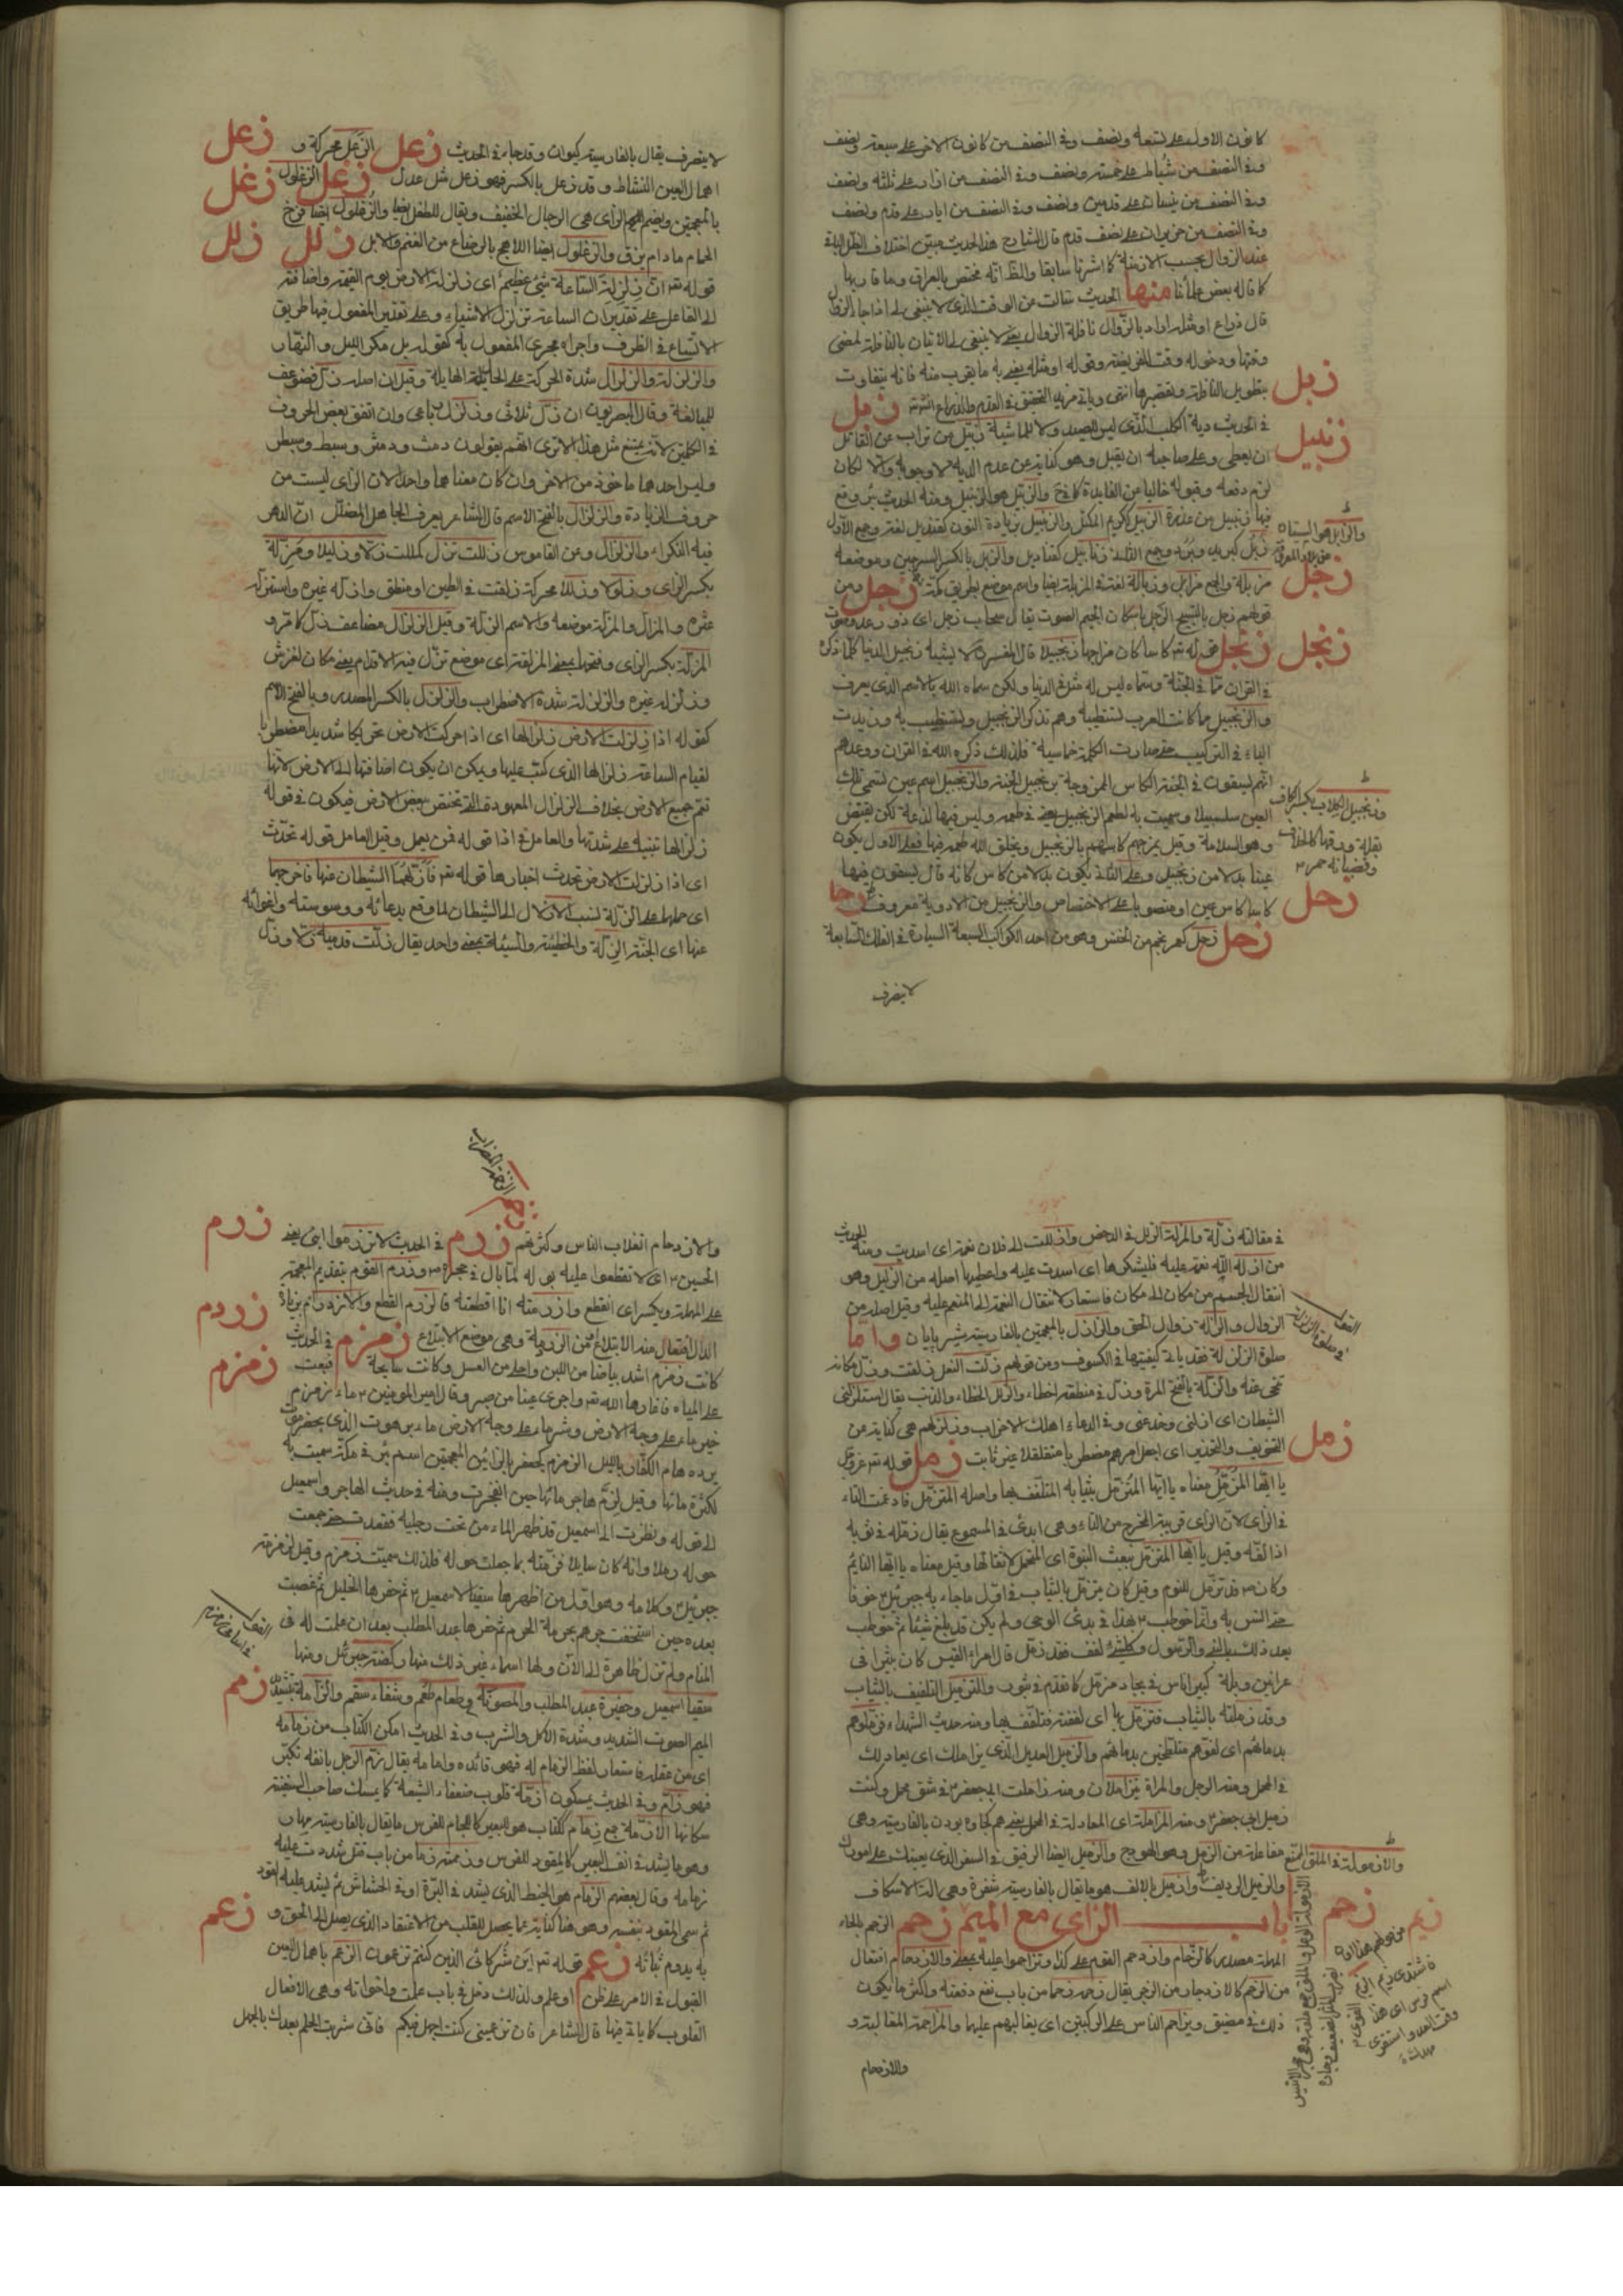 كانون الاول على تسعة ونصف وفي النصف من كانون الاخر على سبعة ونصف
وفي النصف من شباط على خمسة ونصف وفي النصف من اذار على ثلثة ونصف
وفي النصف من نيسان على قدمين ونصف وفي النصف من ايار على قدم ونصف
وفي النصف من حزيران على نصف قدم قال الشارح هذا الحديث مبين اختلاف الظل الباقي
عند الزوال بحسب الازمنة كما اشرنا سابقا والظ انه مختص بالعراق وما قاربها
كما قاله بعض علمائنا منها الحديث سالت عن الوقت الذي لا ينبغي لي اذا جا الزوال
قال ذراع او مثله اراد بالزوال نافلة الزوال يعني لا ينبغي لي الاتيان بالنافلة لمضي
وقتها ودخوله وقت الفريضة وقوله او مثله يعني به ما يقرب منه فانه يتفاوت
بتطويل النافلة وتقصيرها انتهى وياتي مزيد التحقيق في القدم والذراع انشته زبل
في الحديث دية الكلب الذي ليس للصيد ولا للماشية زبيل من تراب على القاتل
ان يعطي وعلى صاحبه ان يقبل وهو كناية عن عدم الدية لا وجوبه والا لكان
لزم دفعه وقبوله خاليا من الفايدة كما في والزبيل هو الزنبيل ومنه الحديث بئر وقع
فيها زنبيل من عذرة الزبيل ككريم المكتل والزنبيل بزيادة النون كقنديل لغة وجمع الاول
زبل كبريد وبرد وجمع الثاني زنابيل كقناديل والزبل بالكسر السرجين وموضعه
مزبلة والجمع مزابل وزبالة لغة في المزبلة ايضا واسم موضع بطريق مكة زجل ومن
قولهم زجل بالتسبيح الزجل باسكان الجيم الصوت يقال سحاب زجل اي ذو رعد وصوت
زنجل قوله تع كاسا كان مزاجها زنجبيلا قال المفسرون لا يشبه زنجبيل الدنيا كلما ذكره
في القران مما في الجنة وسماه ليس له مثل في الدنيا ولكن سماه الله بالاسم الذي يعرف
والزنجبيل مما كانت العرب تستطيبه وهم تذكر الزنجبيل وتستطيب به وزيدت
الياء في التركيب حتى صارت الكلمة خماسية فلذلك ذكره الله في القران ووعدهم
انهم يسقون في الجنة الكاس الممزوجة بزنجبيل الجنة والزنجبيل اسم عين تسمى تلك
العين سلسبيلا وسميت به لطعم الزنجبيل يعني في طعمه وليس فيها لذعة لكن نقيض
وهو السلامة وقيل يمزجهم كاسهم بالزنجبيل ويخلق الله طعمه فيها فعلى الاول يكون
عينا بدلا من زنجبيل وعلى الثاني يكون بدلا من كاس كانه قال يسقون فيها
كاسا كاس عين او منصوبا على الاختصاص والزنجبيل من الادوية معروف
زحل زحل كعمر نجم من الخنس وهو من احد الكواكب السبعة السيارة في الفلك السابعة
لا ينصرف
زبل
زنبيل
زجل
زنجل
زحل
لا ينصرف يقال بالفارسية كيوان وقد جاء في الحديث زعل الزعل محركة و
اهمال العين النشاط وقد زعل بالكسر فهو زعل مثل عدل زغل الزغلول
بالمعجمتين وبضم الزاي هي الرجال الخفيف ويقال للطفل ايضا والزغلول ايضا فرخ
الحمام مادام يزق والزغلول ايضا اللاهج بالرضاع من الغنم والابل زلل
قوله تع ان زلزلة الساعة شيء عظيم اي زلزلة الارض يوم القيمة واضافة
الى الفاعل على تقدير ان الساعة تزلزل الاشياء وعلى تقدير المفعول فيها طريق
الاتساع في الظرف واجراه مجرى المفعول به كقوله بل مكر الليل والنهار
والزلزلة والزلزال شدة الحركة على الحالة الهايلة وقيل ان اصله زل فضوعف
للمبالغة وقال البصريون ان زل ثلاثي وزلزل رباعي وان اتفق بعض الحروف
في الكلمتين لانه يمتنع مثل هذا الا ترى انهم يقولون دمث ودمثر وسبط وسبطر
وليس احدهما ماخوذ من الاخر وان كان معناهما واحد لان الزاي ليست من
حروف الزيادة والزلزال بالفتح الاسم قال الشاعر يعرف الجاهل المضلل ان الدهر
فيه النكراء والزلزال وعن القاموس زللت تزل كمللت زلا وزليلا ومزلة
بكسر الزاي وزلولا وزللا محركة زلقت في الطين او منطق وازله غيره واستزله
غيره والمزل والمزلة موضعه والاسم الزلة وقيل الزلزال مضاعف زل كامر و
المزلة بكسر الزاي وفتحها بمعنى المزلقة اي موضع تزل فيه الاقدام يعني مكان لغزش
وزلزله غيره والزلزلة شدة الاضطراب والزلزل بالكسر المصدر وبالفتح الاسم
كقوله اذا زلزلت الارض زلزالها اي اذا حركت الارض تحريكا شديدا مضطربا
لقيام الساعة زلزالها الذي كتب عليها ويمكن ان يكون اضافتها الى الارض لانها
تعم جميع الارض بخلاف الزلزال المعهودة التي تختص ببعض الارض فيكون في قوله
زلزالها تنبيه على شدتها والعامل في اذا قوله فمن يعمل وقيل العامل قوله تحدث
اي اذا زلزلت الارض تحدث اخبارها قوله تع فازلهما الشيطان عنها فاخرجهما
اي حملها على الزلة نسب الازلال الى الشيطان لما وقع بدعائه ووسوسته واغوائه
عنها اي الجنة الزلة والخطيئة والسيئة بمعنى واحد يقال زلت قدميه زلا وزل
زعل
زغل
زلل
في مقالته زلة والمزلة الزلل في الدحض وازللت الى فلان نعمة اي اسديت ومنه الحديث
من ازله الله نعمة عليه فليشكرها اي اسدت عليه واعطيها اصله من الزليل وهو
انتقال الجسم من مكان الى مكان فاستعار لانتقال النعمة الى المنعم عليه وقيل اصله من
الزوال والزلة زوال الحق والزلزل بالمعجمتين بالفارسية شير پايان واما
صلوة الزلزلة فقد ياتي كيفيتها في الكسوف ومن قولهم زلت النعل زلقت وزل مكانه
تنحى عنه والزلة بالفتح المرة وزل في منطقه اخطاء والزلل الخطاء والذنب يقال استزلني
الشيطان اي ازلني وخدعني وفي الدعاء اهلك الاحزاب وزلزلهم هي كناية عن
التخويف والتحذير اي اجعل امرهم مضطربا متقلقلا غير ثابت زمل قوله تع عزوجل
يا ايها المزمل معناه يا ايها المتزمل بثيابه المتلفف بها واصله المتزمل فادغمت التاء
في الزاي لان الزاي قريبة المخرج من التاء وهي ابدى في المسموع يقال زمله في ثوبه
اذا لفه وقيل يا ايها المتزمل ببعث النبوة اي المتحمل لاثقالها وقيل معناه يا ايها النايم
وكان ص قد تزمل للنوم وقيل كان متزمل بالثياب في اول ما جاء به جبرئيل خوفا
حتى انس به وانما خوطب بهذا في بدئ الوحي ولم يكن قد بلغ شيئا ثم خوطب
بعد ذلك بالنبي والرسول وكل شيء لفف فقد زمل قال امراء القيس كان ثبيرا في
عرانين وبله كبير اناس في بجاد مزمل كما تقدم في ثبور والتزميل التلفيف بالثياب
وقد زملته بالثياب فتزمل بها اي لففته فتلفف بها ومنه حديث الشهداء فزملوهم
بدمائهم اي لفوهم متلطخين بدمائهم والزميل العديل الذي يزاملك اي يعادلك
في المحمل ومنه الرجل والمراة يتزاملان ومنه زاملت ابي جعفر في شق محمل وكنت
زميل ابي جعفر ومنه المزاملة اي المعادلة في المحمل يعني هم كجاوه بودن بالفارسية وهي
مفاعلة من الزمل وهو الهودج والزميل ايضا الرفيق في السفر الذي يعينك على امورك
والزميل الرديف وازميل بالالف هو ما يقال بالفارسية شفرة وهي الة الاسكاف
باب الزاي مع الميم زحم الزحم بالحاء
المهملة مصدر كالزحام وازدحم القوم على كذا وتزاحموا عليه بمعنى والازدحام افتعال
من الزحم كالازدجار من الزجر يقال زحمه زحما من باب نفع دفعته واكثر ما يكون
ذلك في مضيق ويزاحم الناس على الركبتين اي يغالبهم عليها والمزاحمة المغالبة و
والازدحام
زمل
زحم
زيم
والازدحام انقلاب الناس وكثرتهم زرم في الحديث لا تزرموا ابني يعني
الحسين ع اي لا تقطعوا عليه بوله لما بال في حجره ص وزرم القوم بتقديم المعجمة
على المهملة وبكسر اي انقطع وازرمته انا اقطعته فالزرم القطع والازدرام بزيادة
الدال افتعال منه الابتلاع من الزردمة وهي موضع الابتلاع زمزم في الحديث
كانت زمزم اشد بياضا من اللبن واحلى من العسل وكانت سايحة فبغت
على المياه فاغارها الله تع واجرى عينا من صبر وقال امير المؤمنين ع ماء زمزم
خير ماء على وجه الارض وشر ماء على وجه الارض ماء برهوت الذي بحضرموت
يرده هام الكفار بالليل الزمزم كجعفر بالزائين المعجمتين اسم بئر في مكة سميت به
لكثرة مائها وقيل لزم هاجر مائها حين انفجرت ومنه في حديث الهاجر واسمعيل
الى قوله ونظرت الى اسمعيل قد ظهر الماء من تحت رجليه فقعدت حتى جمعت
حوله رملا وانه كان سايلا فزمته بما جعلت حوله فلذلك سميت زمزم وقيل لزمزمة
جبرئيل وكلامه وهو اول من اظهرها سقيا لاسمعيل ع ثم حفرها الخليل ثم غصبت
بعده حين استخفت جرهم بحرمة الحرم ثم حفرها عبد المطلب بعد ان علمت له في
المنام ولم تزل ظاهرة الى الان ولها اسماء غير ذلك منها ركضة جبرئيل ومنها
سقيا اسمعيل وحفيرة عبد المطلب والمصونة وطعام طعم وشفاء سقم والزامة بتشديد
الميم الصوت الشديد وشدة الاكل والشرب وفي الحديث امكن الكتاب من زمامه
اي من عقله فاستعار لفظ الزمام له فهو قائده وامامه يقال زم الرجل بانفه تكبر
فهو زام وفي الحديث يمسكون ازمة قلوب ضعفاء الشيعة كما يمسك صاحب السفينة
سكانها الازمة جمع زمام ككتاب هو للبعير كالجام للفرس ما يقال بالفارسية مهار
وهو ما يشد في انف البعير كالمقود للفرس وزممته زما من باب قتل شددت عليه
زمامه وقال بعضهم الزمام هو الخيط الذي يشد في البرة او في الخشاش ثم يشد عليه المقود
ثم سمي المقود بنفسه وهو هنا كناية عما يحصل للقلب من الاعتقاد الذي يصل الى الحق و
به يدوم ثباته زعم قوله تع اين شركائي الذين كنتم تزعمون الزعم باهمال العين
القبول في الامر على ظن او علم ولذلك دخل في باب علمت واخواته وهي الافعال
القلوب كما ياتي فيها قال الشاعر فان تزعميني كنت اجهل فيكم فاني شريت الحلم بعدك بالجهل
زرم
زردم
زمزم
زمم
زعم